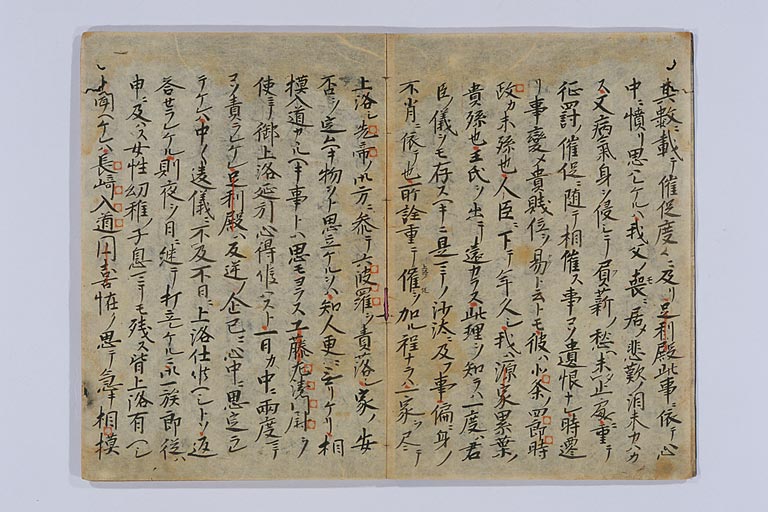 其数ニ載テ催促度々ニ及リ足利殿此事ニ依テ心
中ニ憤リ思ハレケルハ我父ノ喪ニ居メ悲歎ノ泪未カハカ
ス又病氣身ヲ侵シテ負薪ノ愁ヘ未止處ニ重テ
征罸ノ催促ニ随テ相催ス事コソ遺恨ナレ時遷
リ事變メ貴賤位ヲ易ト云トモ彼ハ北条ノ四郎時
政カ末孫也人臣ニ下テ年久シ我ハ源家累葉ノ
貴孫也王氏ヲ出テ遠カラス此理ヲ知ラハ一度ハ君
臣ノ儀ヲモ存スヘキニ是ニテノ沙汰ニ及フ事偏ニ身ノ
不肖ニ依テ也所詮重テ催促ヲ加ル程ナラハ一家ヲ尽テ
上洛シ先帝ノ御方ニ参テ六波羅ヲ責落シ家ノ安
否ヲ定ムヘキ物ヲト思立ケルヲハ知人更ニ无リケリ相
模入道カヽルヘキ事トハ思モヨラス工藤左衛門尉ヲ
使ニテ御上洛延引心得候ハスト一日カ中ニ兩度ニテ
コソ責ラレケレ足利殿ハ反逆ノ企已ニ心中ニ思定ラレ
テケレハ中々遠儀ニ不及不日ニ上洛仕候ヘシトソ返
答セラレケル則夜ヲ日ニ継テ打立ケルニ御一族郎從ハ
申ニ及ハス女性幼稚ノ子息ニテモ残ス皆上洛有ヘシ
ト聞ヘケレハ長﨑入道圓喜怪ク思テ急キ相模